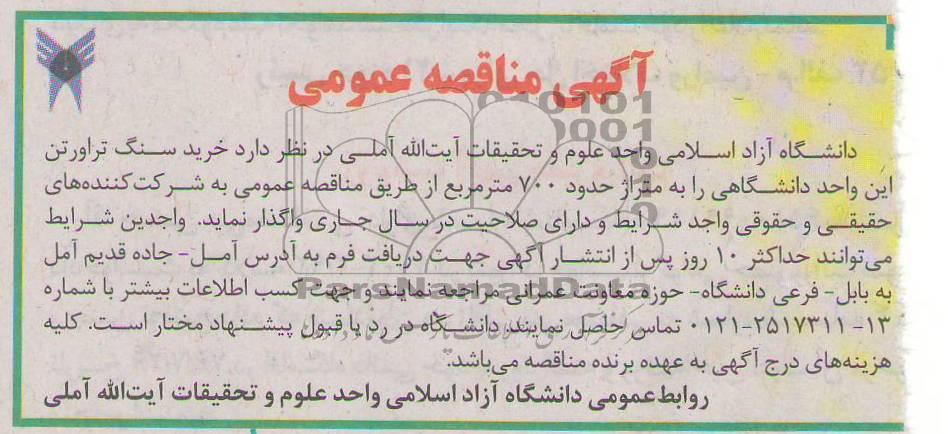 آگهی مناقصه عمومی
دانشگاه آزاد اسلامی واحد علوم و تحقیقات آیت‌الله آملی در نظر دارد خرید سنگ تراورتن
این واحد دانشگاهی را به متراژ حدود ۷۰۰ مترمربع از طریق مناقصه عمومی به شرکت‌کننده‌های
حقیقی و حقوقی واجد شرایط و دارای صلاحیت در سال جاری واگذار نماید. واجدین شرایط
می‌توانند حداکثر ۱۰ روز پس از انتشار آگهی جهت دریافت فرم به آدرس آمل- جاده قدیم آمل
به بابل- فرعی دانشگاه- حوزه معاونت عمرانی مراجعه نمایند و جهت کسب اطلاعات بیشتر با شماره
۱۳- ۰۱۲۱-۲۵۱۷۳۱۱ تماس حاصل نمایند. دانشگاه در رد یا قبول پیشنهاد مختار است. کلیه
هزینه‌های درج آگهی به عهده برنده مناقصه می‌باشد.
روابط‌عمومی دانشگاه آزاد اسلامی واحد علوم و تحقیقات آیت‌الله آملی
ParsNamadData